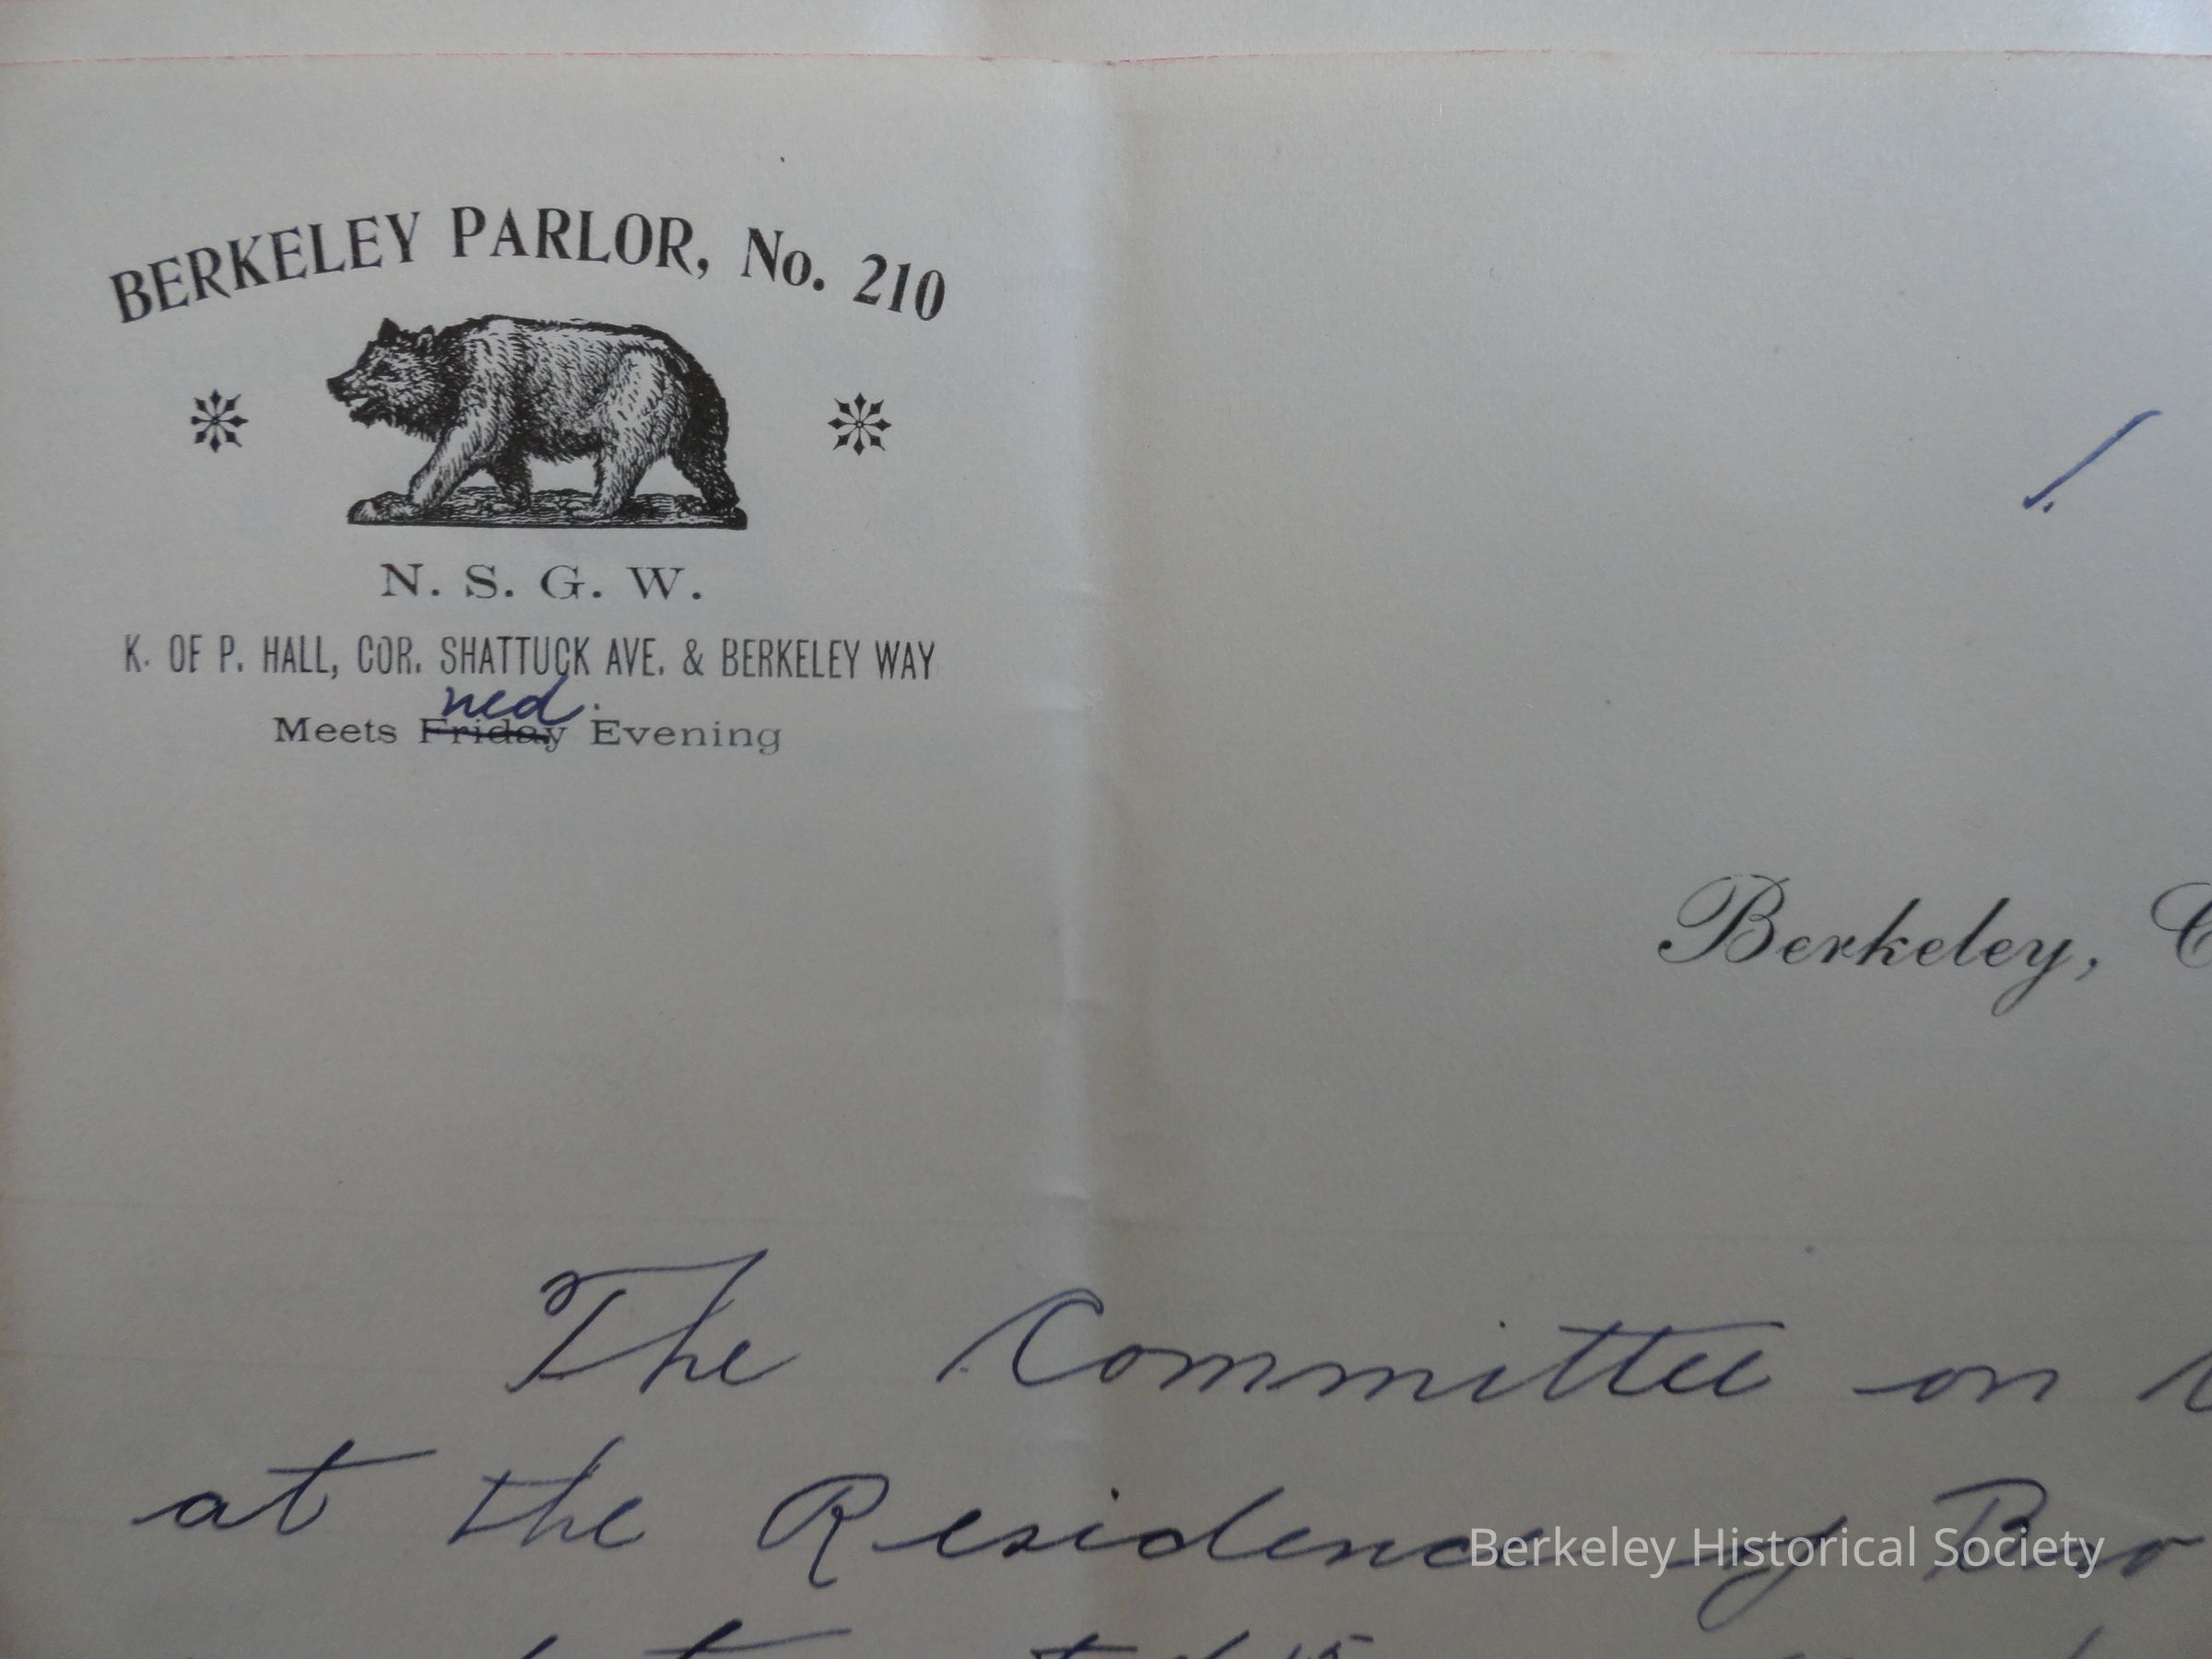 BERKELEY PARLOR, No. 210
N. S. G. W.
K. OF P. HALL, COR. SHATTUCK AVE. & BERKELEY WAY
Wed.
Meets Friday Evening
1.
Berkeley, C
The Committee on
at the Residence of Bro
Berkeley Historical Society